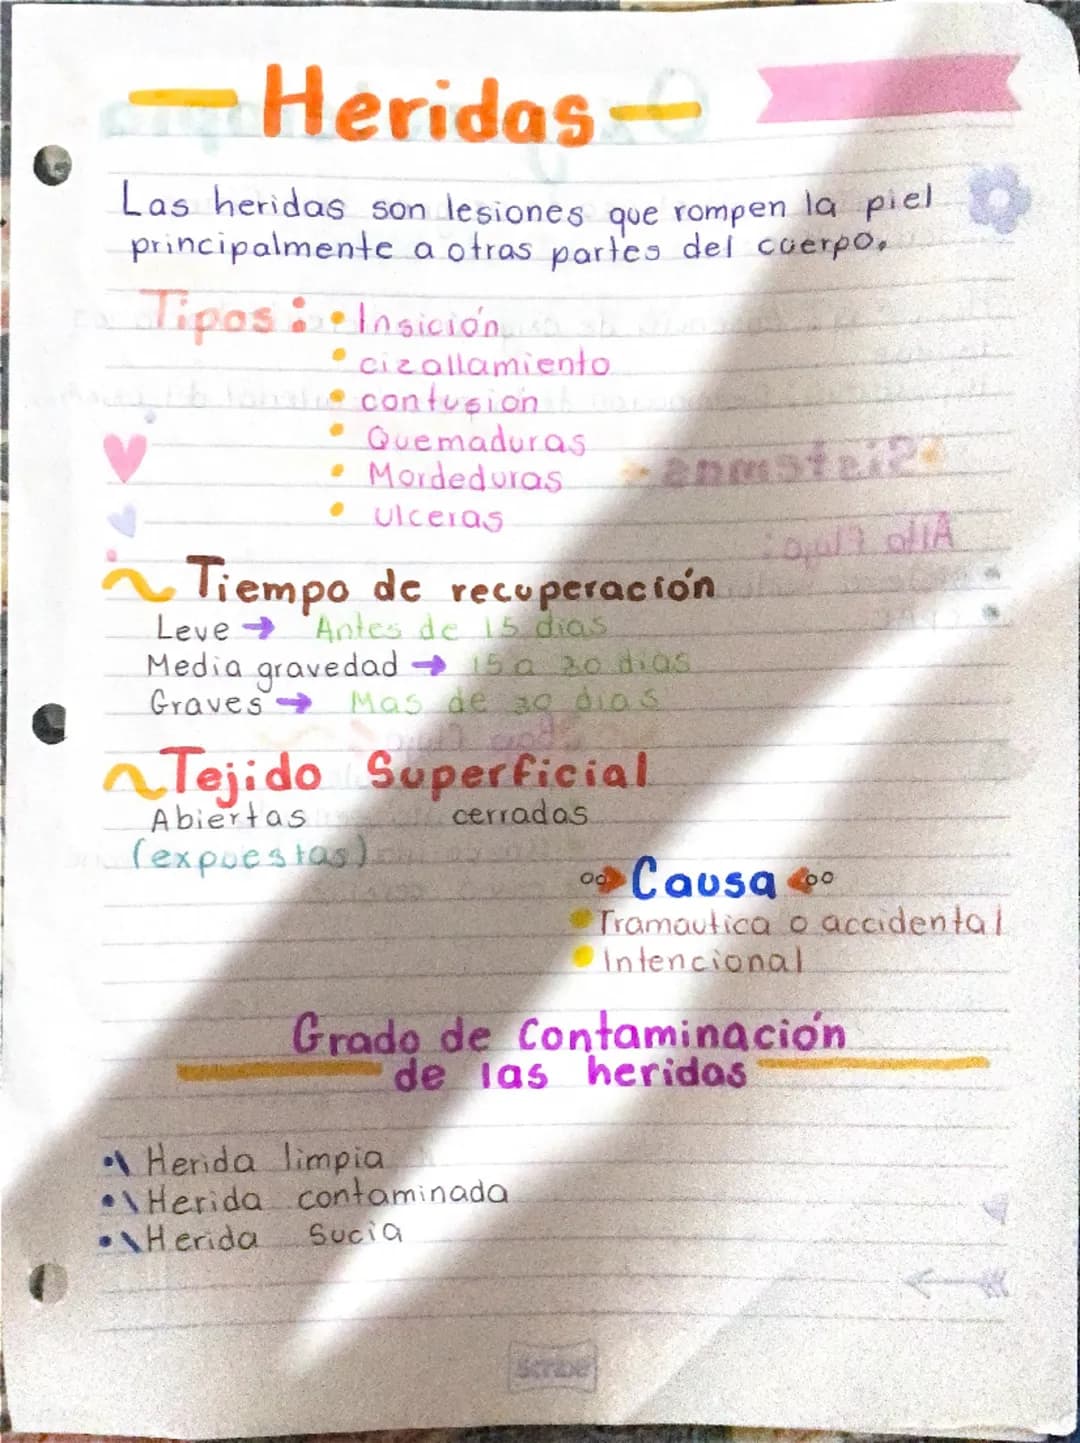 Heridas
Las heridas son lesiones que rompen la piel
principalmente a otras partes del cuerpo.
Tipos: • Insición
• cizallamiento
• contusion
• Quemaduras
• Mordeduras
• ulceras
Tiempo de recuperación
Leve → Antes de 15 dias
Media gravedad → 15 a 30 dias
Graves → Mas de 30 dias
Tejido Superficial
Abiertas cerradas
(expuestas)
Causa
• Tramautica o accidental
• Intencional
Grado de Contaminación
de las heridas
• Herida limpia
• Herida contaminada
• Herida Sucia
Scribe